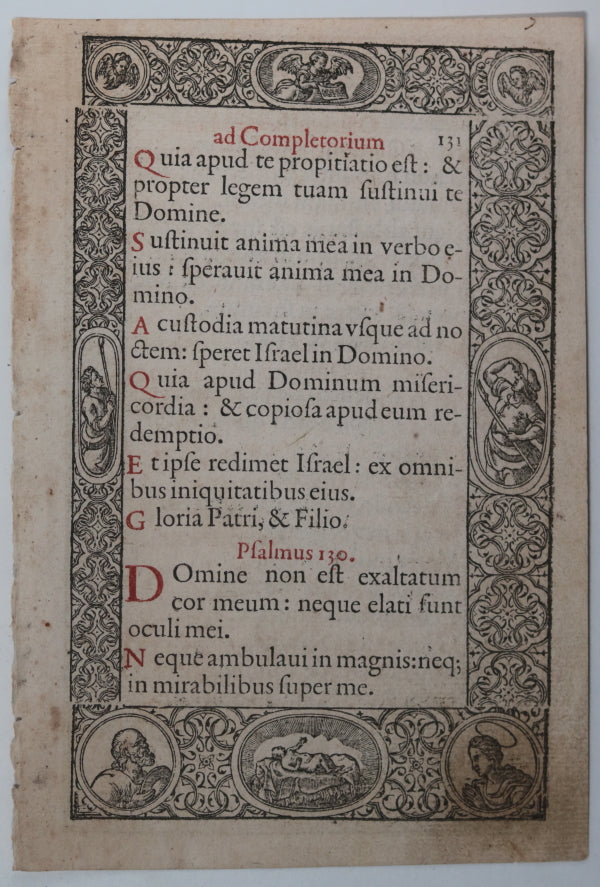 ad Completorium 131
Quia apud te propitiatio est: &
propter legem tuam ſuſtinui te
Domine.
Suſtinuit anima mea in verbo e-
ius: ſperauit anima mea in Do-
mino.
A cuſtodia matutina vſque ad no
ctem: ſperet Iſrael in Domino.
Quia apud Dominum miſeri-
cordia: & copioſa apud eum re-
demptio.
Et ipſe redimet Iſrael: ex omni-
bus iniquitatibus eius.
Gloria Patri, & Filio.
Pſalmus 130.
DOmine non eſt exaltatum
cor meum: neque elati ſunt
oculi mei.
Neque ambulaui in magnis: neq;
in mirabilibus ſuper me.